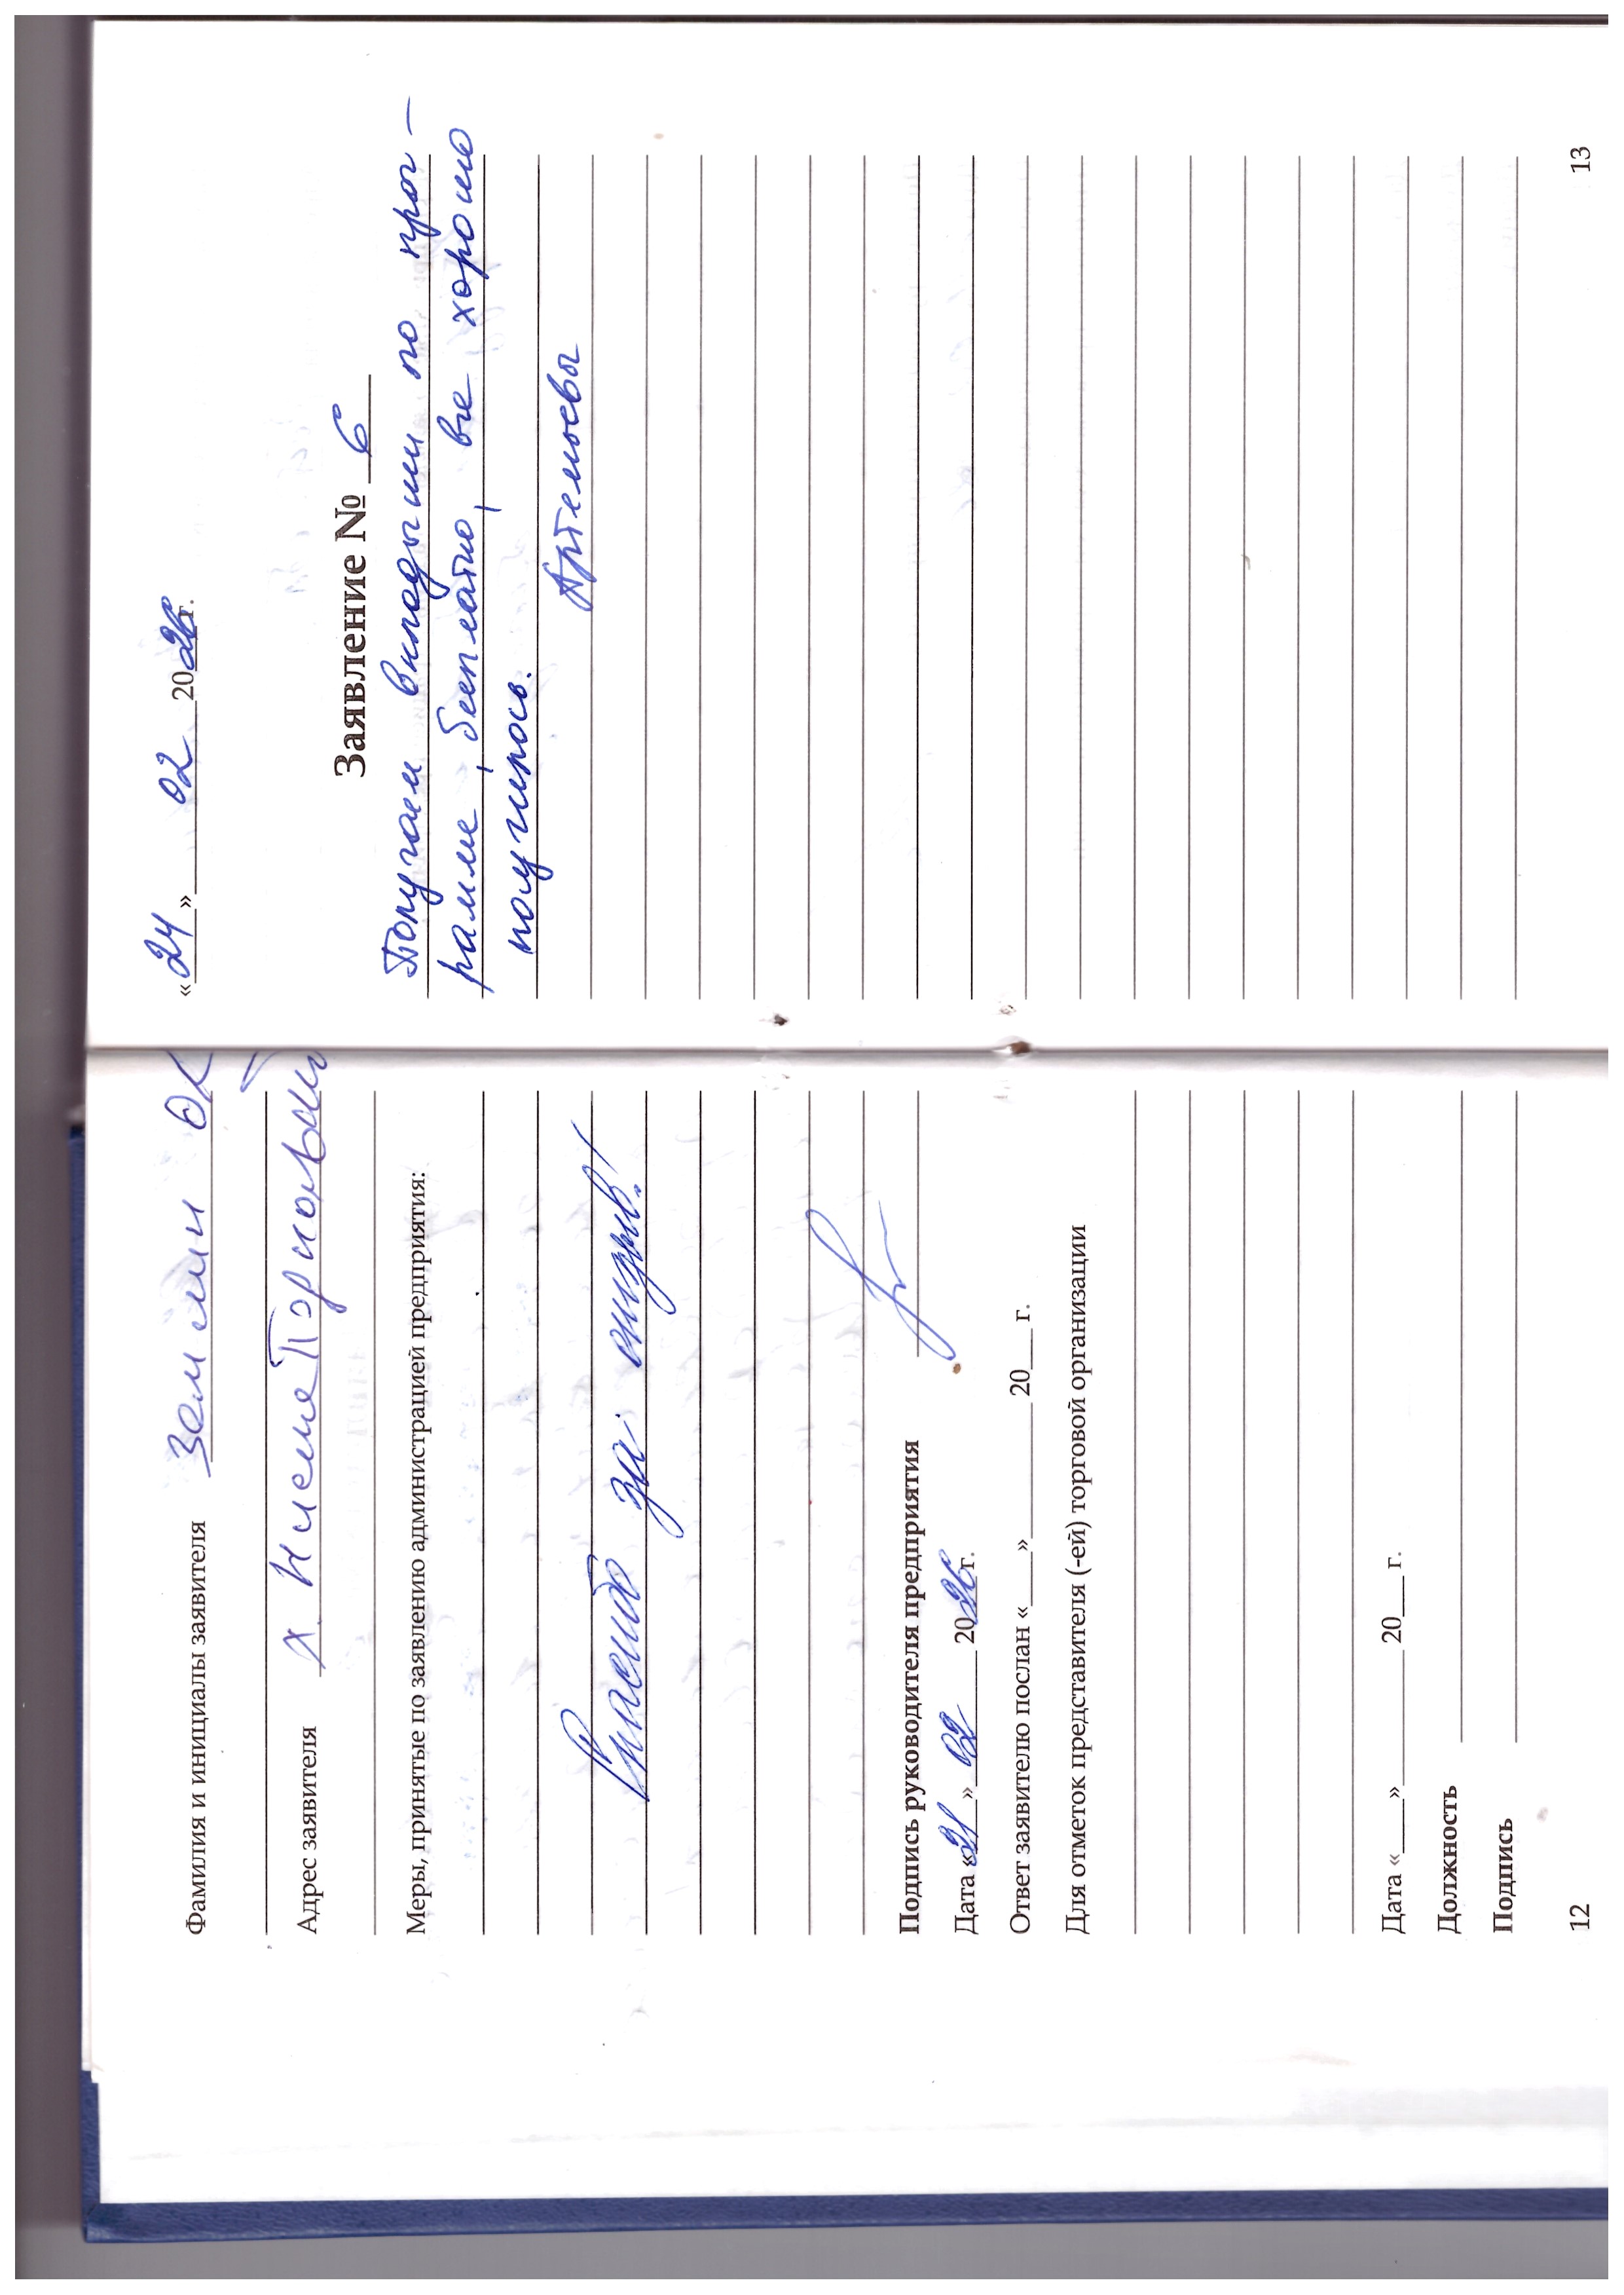 Фамилия и инициалы заявителя Землин
Адрес заявителя х.
Меры, принятые по заявлению администрацией предприятия:
Спасибо за отзыв!
Подпись руководителя предприятия
Дата «21» 02 2026г.
Ответ заявителю послан «___» ________ 20___ г.
Для отметок представителя (-ей) торговой организации
Дата «___» ________ 20___ г.
Должность
Подпись
12
«24» 02 2026г.
Заявление № 6
Получаем вкладыши по прог-
рамме, бесплатно, все хорошо
получилось.
Артемьевы
13